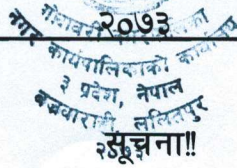 २०७३
गोदावरी नगरपालिका
नगर कार्यपालिकाको कार्यालय
३ प्रदेश, नेपाल
बज्रवाराही, ललितपुर
सूचना!!